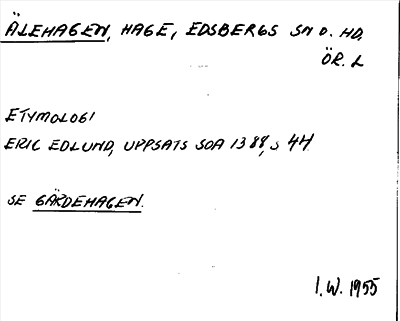 ÄLEHAGEN, HAGE, EDSBERGS SN O. HD,
ÖR. L
ETYMOLOGI
ERIC EDLUND, UPPSATS SOA 1388, S 44
SE GÄRDEHAGEN.
I.W. 1955